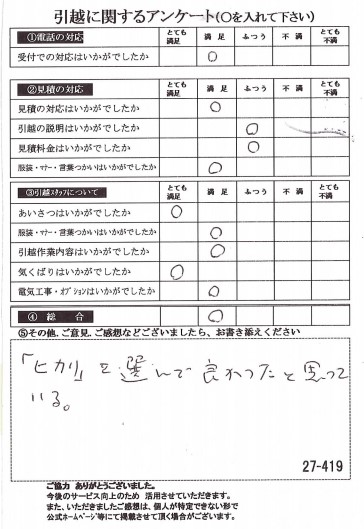 引越に関するアンケート(○を入れて下さい)
①電話の対応 とても満足 満足 ふつう 不満 とても不満
受付での対応はいかがでしたか ○
②見積の対応 とても満足 満足 ふつう 不満 とても不満
見積の対応はいかがでしたか ○
引越の説明はいかがでしたか ○
見積料金はいかがでしたか ○
服装・マナー・言葉つかいはいかがでしたか ○
③引越スタッフについて とても満足 満足 ふつう 不満 とても不満
あいさつはいかがでしたか ○
服装・マナー・言葉つかいはいかがでしたか ○
引越作業内容はいかがでしたか ○
気くばりはいかがでしたか ○
電気工事・オプションはいかがでしたか ○
④ 総合 ○
⑤その他、ご意見、ご感想などございましたら、お書き添えください
「ヒカリ」を選んで良かったと思って
いる。
27-419
ご協力 ありがとうございました。
今後のサービス向上のため 活用させていただきます。
また、いただきましたご感想は、個人が特定できない形で
公式ホームページ等にて掲載させて頂く場合がございます。